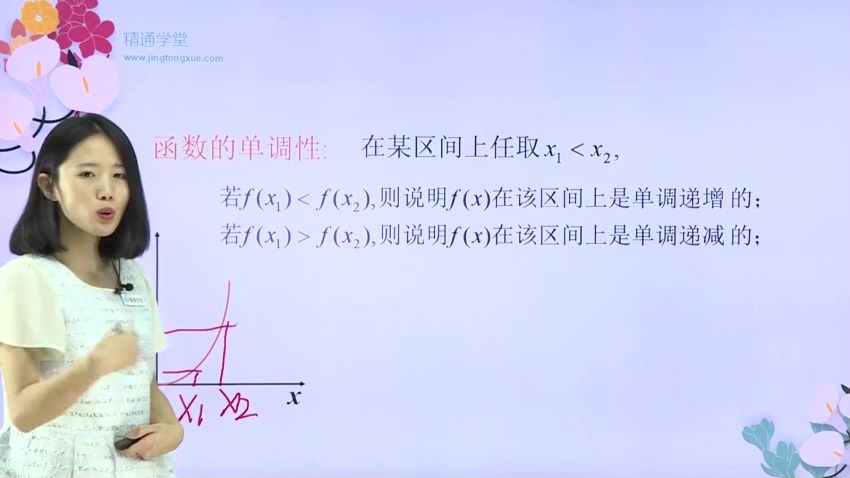 精通学堂
www.jingtongxue.com
函数的单调性: 在某区间上任取 x₁ < x₂,
若f(x₁) < f(x₂),则说明f(x)在该区间上是单调递增的;
若f(x₁) > f(x₂),则说明f(x)在该区间上是单调递减的;
x
x₁ x₂